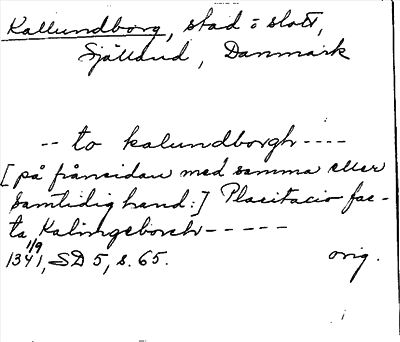 Kallundborg, stad o slott,
Själland, Danmark
-- to kalundborgh ----
[på frånsidan med samma eller
samtidig hand:] Placitacio fac-
ta Kalingeborch -----
1341 1/9, SD 5, s. 65. orig.